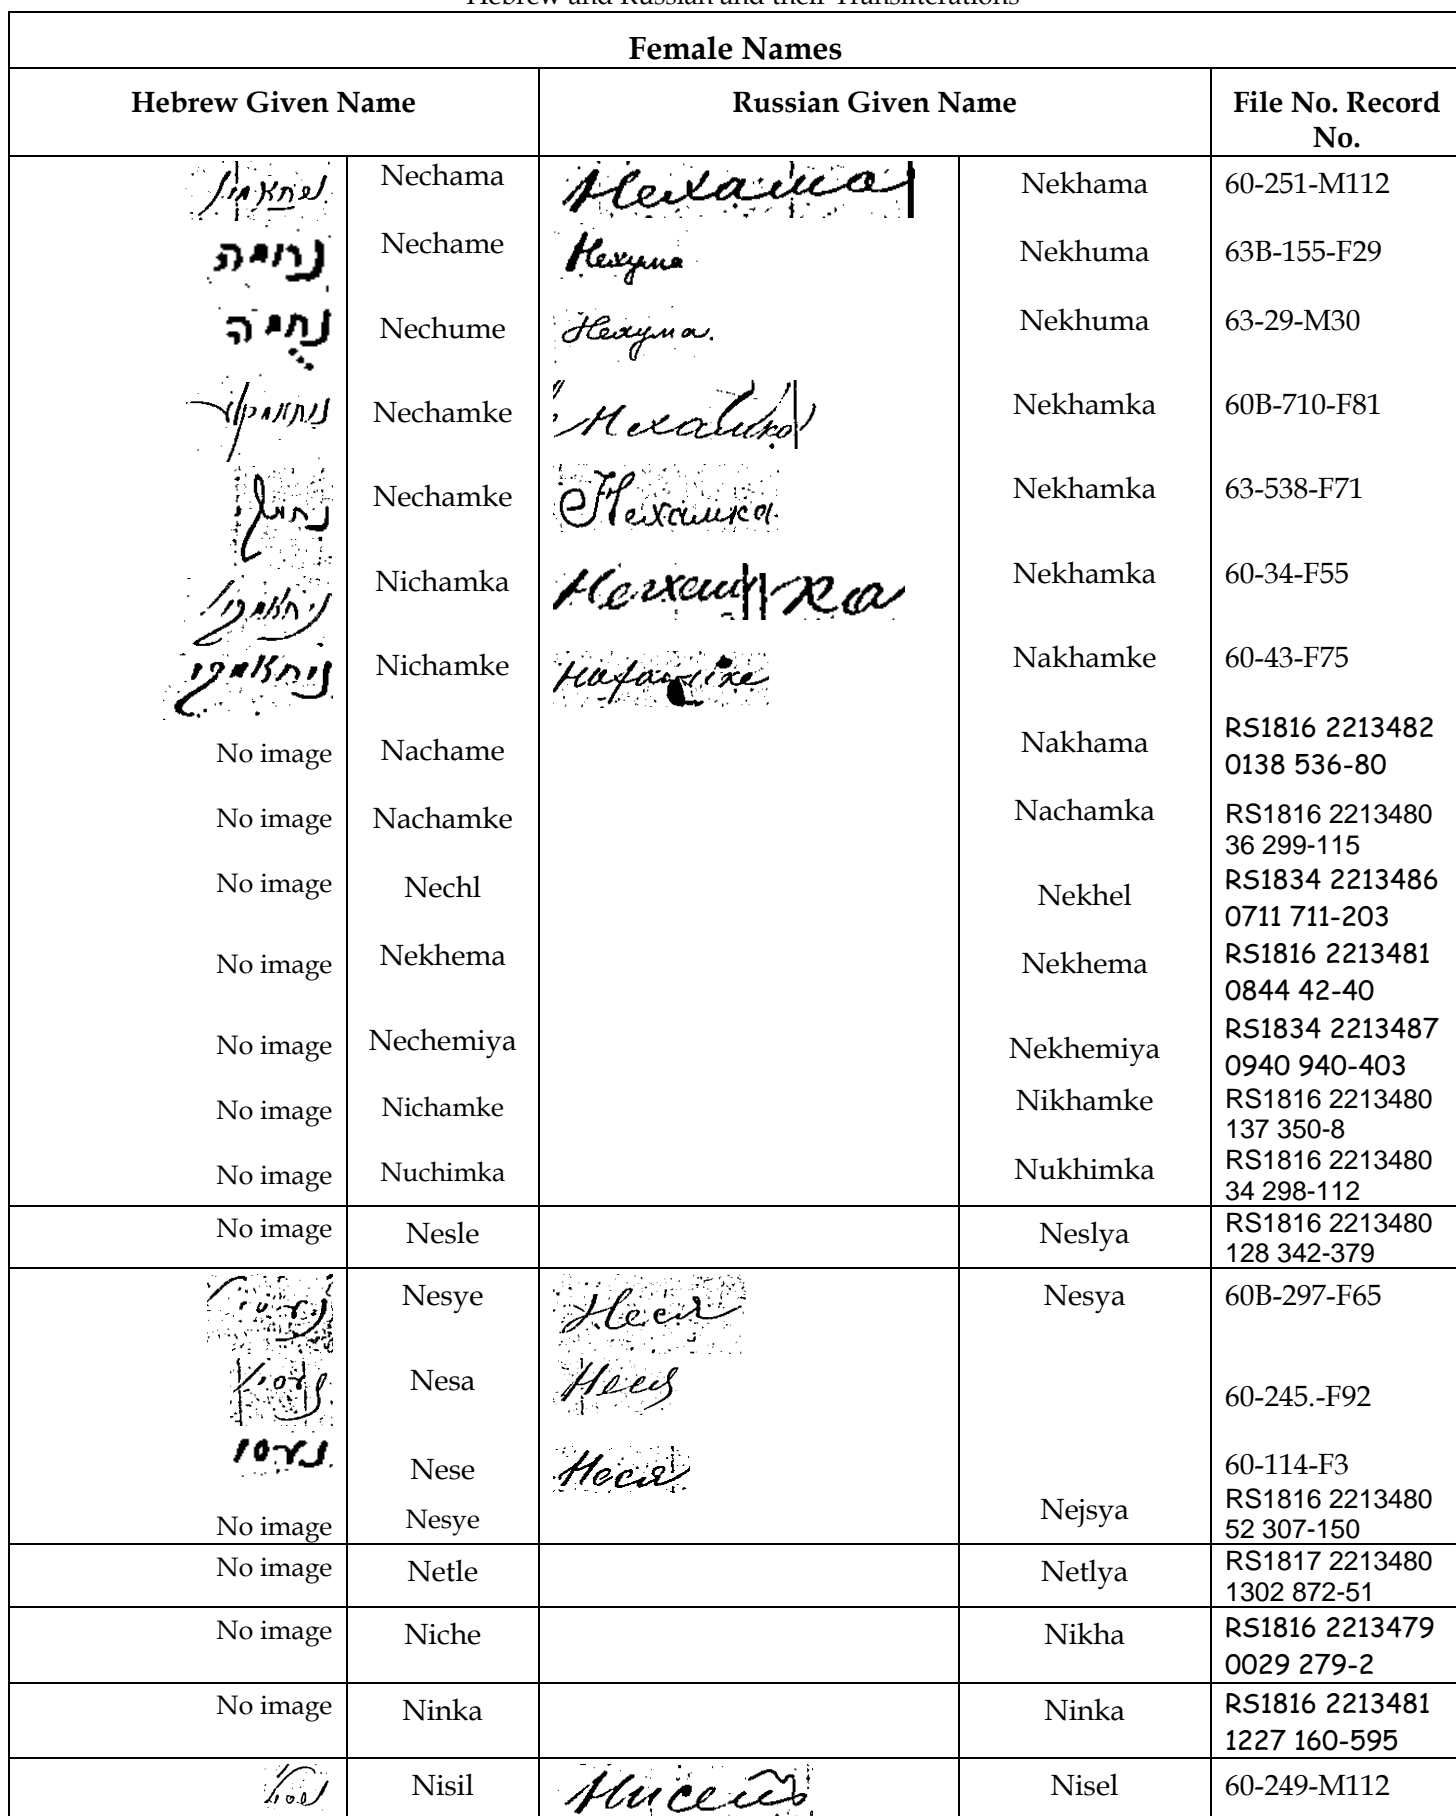 Hebrew and Russian and their Transliterations
Female Names
Hebrew Given Name Russian Given Name File No. Record
No.
Nechama Нехама Nekhama 60-251-M112
נחמה Nechame Нехума Nekhuma 63B-155-F29
נחֻמה Nechume Нехума. Nekhuma 63-29-M30
Nechamke Нехамка Nekhamka 60B-710-F81
Nechamke Нехамка Nekhamka 63-538-F71
Nichamka Nekhamka 60-34-F55
ניחאמקי Nichamke Nakhamke 60-43-F75
No image Nachame Nakhama RS1816 2213482
0138 536-80
No image Nachamke Nachamka RS1816 2213480
36 299-115
No image Nechl Nekhel RS1834 2213486
0711 711-203
No image Nekhema Nekhema RS1816 2213481
0844 42-40
No image Nechemiya Nekhemiya RS1834 2213487
0940 940-403
No image Nichamke Nikhamke RS1816 2213480
137 350-8
No image Nuchimka Nukhimka RS1816 2213480
34 298-112
No image Nesle Neslya RS1816 2213480
128 342-379
Nesye Неся Nesya 60B-297-F65
Nesa Неся 60-245.-F92
Nese Неся 60-114-F3
No image Nesye Nejsya RS1816 2213480
52 307-150
No image Netle Netlya RS1817 2213480
1302 872-51
No image Niche Nikha RS1816 2213479
0029 279-2
No image Ninka Ninka RS1816 2213481
1227 160-595
Nisil Nisel 60-249-M112